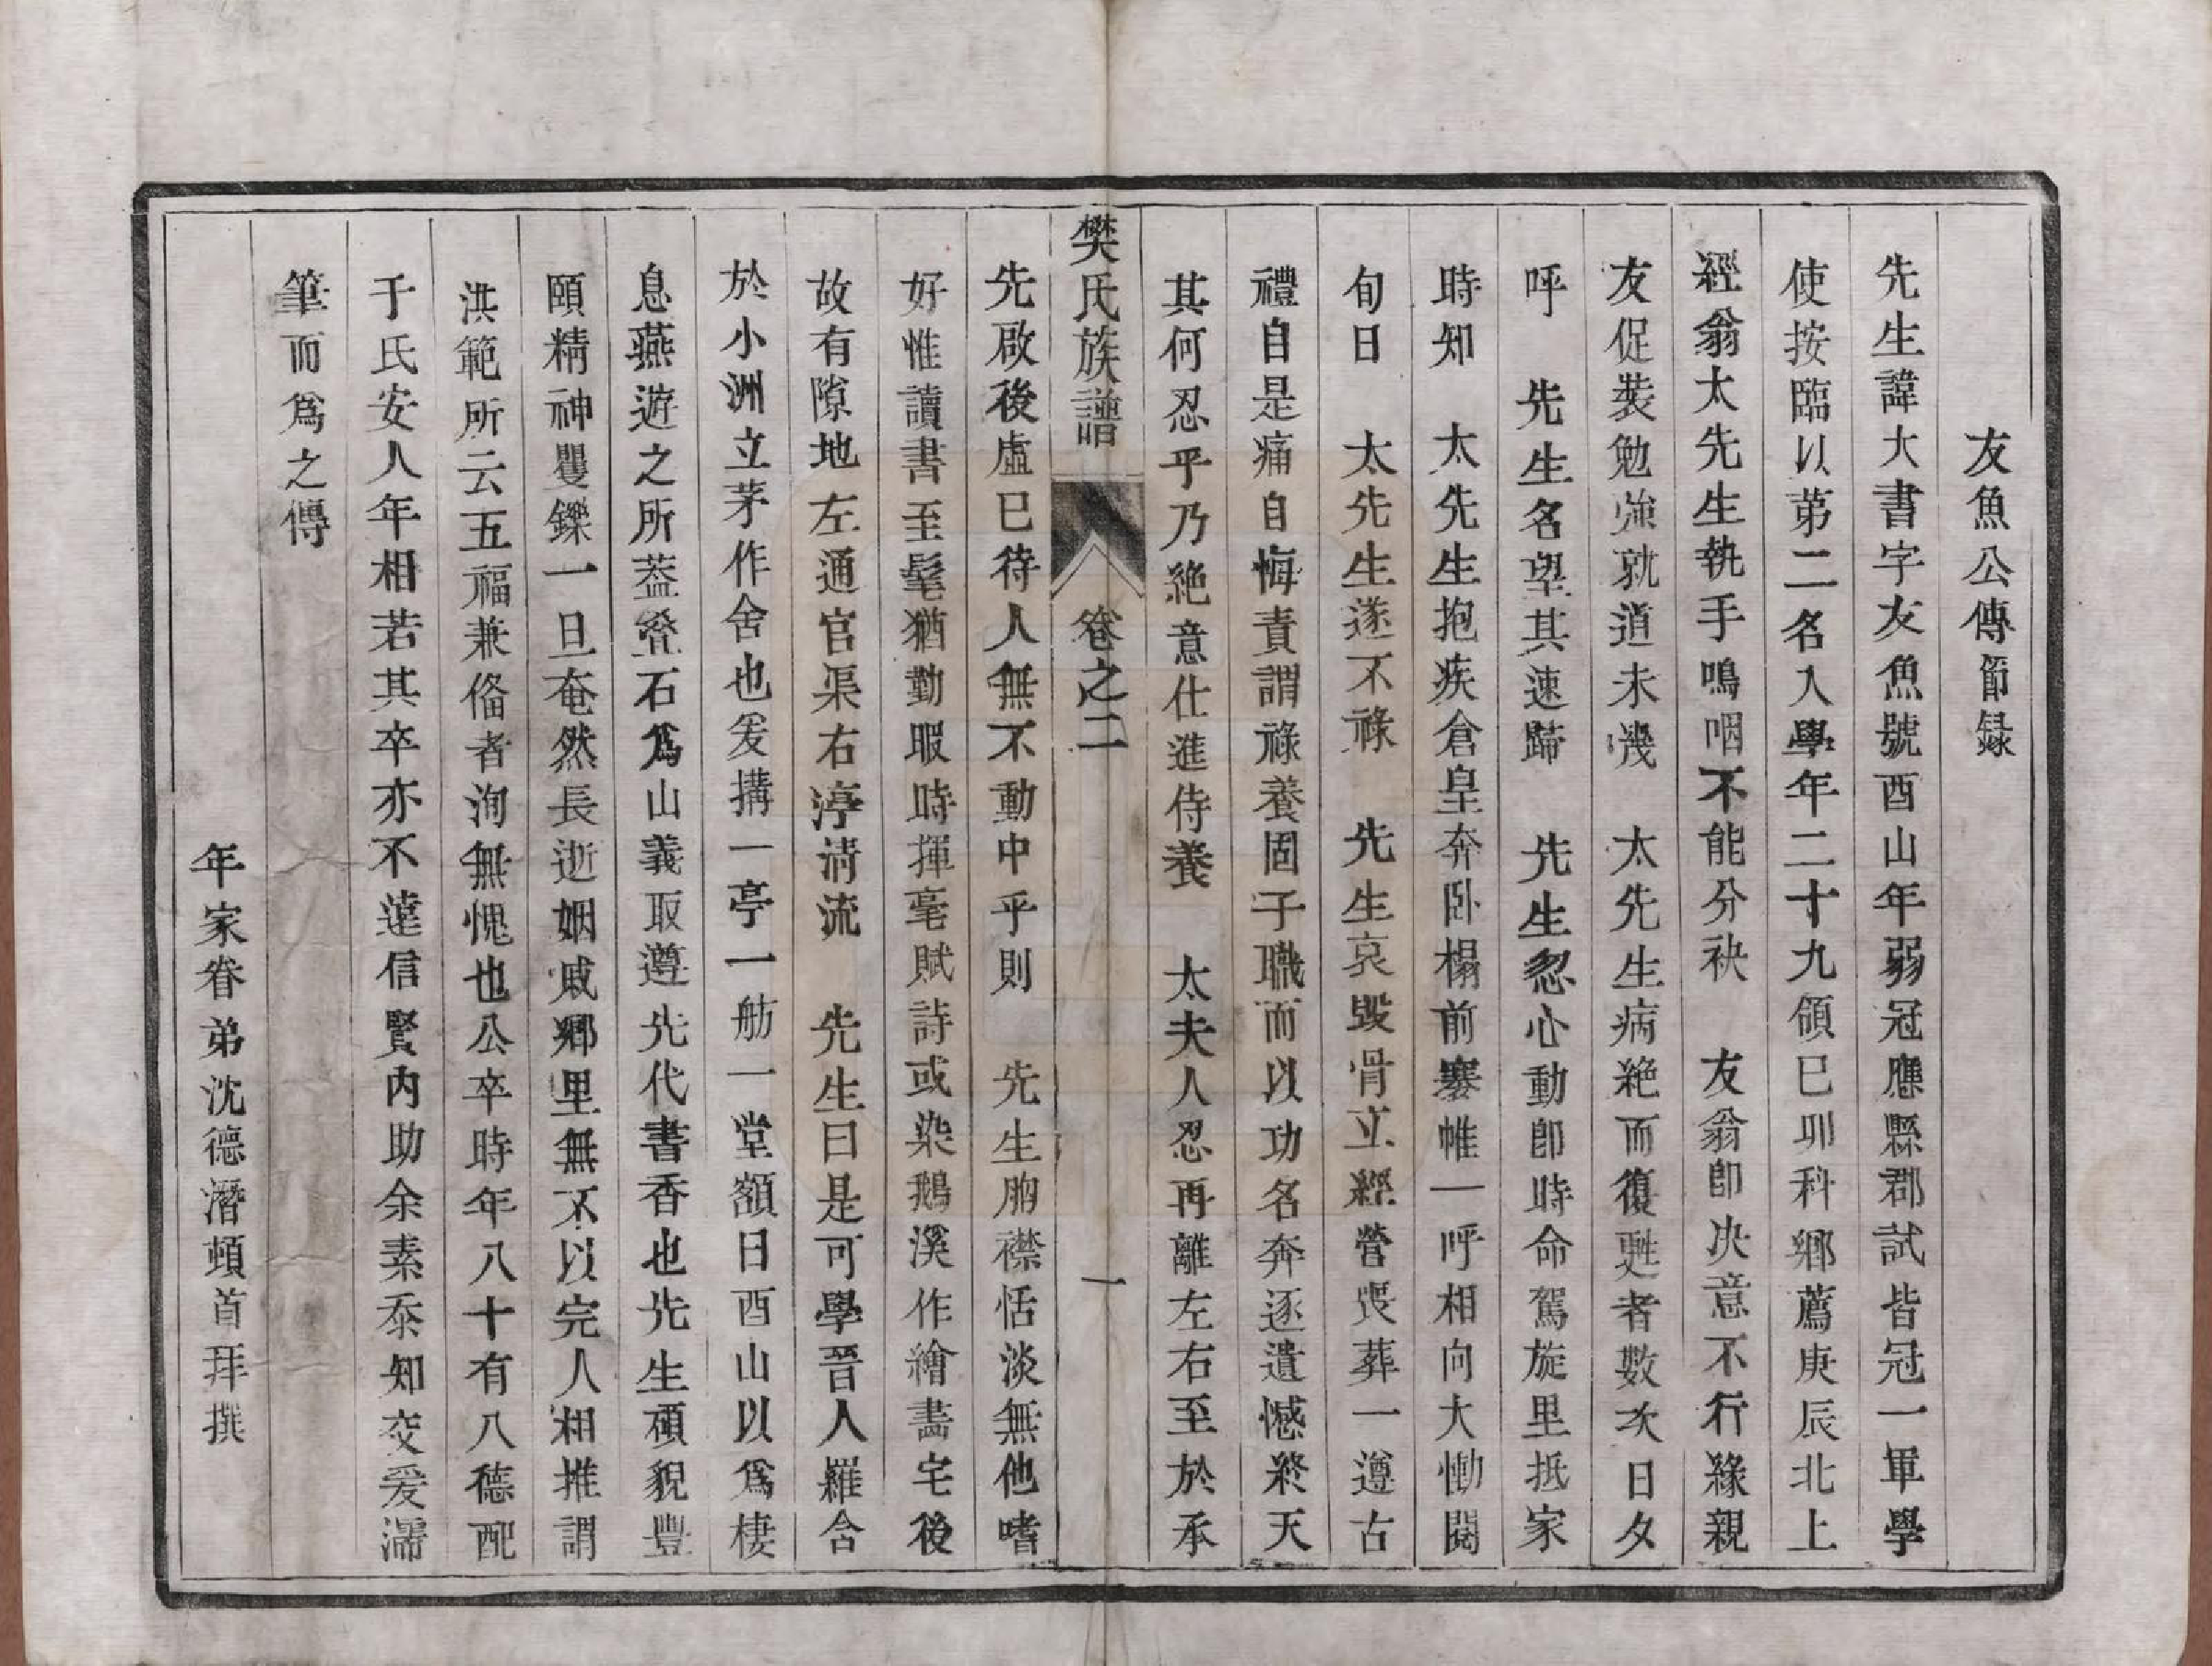 友魚公傳節録
先生諱大書字友魚號酉山年弱冠應縣郡試皆冠一軍學
使按臨以第二名入學年二十九領已卯科鄉薦庚辰北上
經翁太先生執手嗚咽不能分袂　友翁卽决意不行緣親
友促裝勉強就道未幾　太先生病絶而復甦者數次日夕
呼　先生名望其速歸　先生忽心動卽時命駕旋里抵家
時知　太先生抱疾倉皇奔卧榻前搴帷一呼相向大慟閱
旬日　太先生遂不祿　先生哀毁骨立經營喪葬一遵古
禮自是痛自悔責謂祿養固子職而以功名奔逐遺憾終天
其何忍乎乃絶意仕進侍養　太夫人忍再離左右至於承
樊氏族譜　卷之二　一
先啟後虛已待人無不動中乎則　先生胷襟恬淡無他嗜
好惟讀書至髦猶勤暇時揮毫賦詩或染鵝溪作繪畵宅後
故有隙地左通官渠右渟淸流　先生曰是可學晉人羅含
於小洲立茅作舍也爰搆一亭一舫一堂額日酉山以爲棲
息燕遊之所葢叠石爲山義取遵先代書香也先生碩貌豐
頤精神矍鑠一旦奄然長逝姻戚鄉里無不以完人相推謂
洪範所云五福兼俻者洵無愧也公卒時年八十有八德配
于氏安人年相若其卒亦不遠信賢内助余素忝知交爰濡
筆而爲之傳
年家眷弟沈德潛頓首拜撰